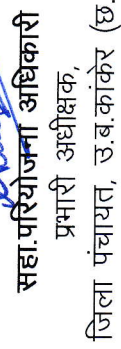 सहा.परियोजना अधिकारी
प्रभारी अधीक्षक,
जिला पंचायत, उ.ब.कांकेर (छ.